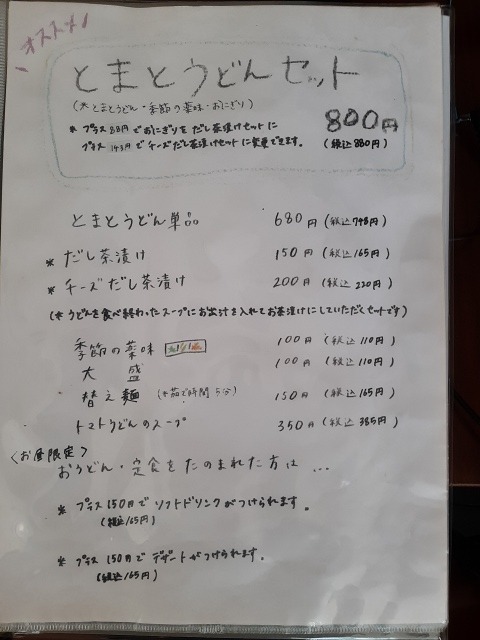 オススメ!
とまとうどんセット
(※とまとうどん・季節の薬味・おにぎり)
800円
* プラス88円でおにぎりをだし茶漬けセットに
プラス143円でチーズだし茶漬けセットに変更できます。
(税込880円)
とまとうどん単品 680円(税込748円)
* だし茶漬け 150円(税込165円)
* チーズだし茶漬け 200円(税込220円)
(※うどんを食べ終わったスープにお出汁を入れてお茶漬けにしていただくセットです)
季節の薬味 100円(税込110円)
大 盛 100円(税込110円)
替え麺(※茹で時間5分) 150円(税込165円)
トマトうどんのスープ 350円(税込385円)
〈お昼限定〉
おうどん・定食をたのまれた方は...
* プラス150円でソフトドリンクがつけられます。
(税込165円)
* プラス150円でデザートがつけられます。
(税込165円)